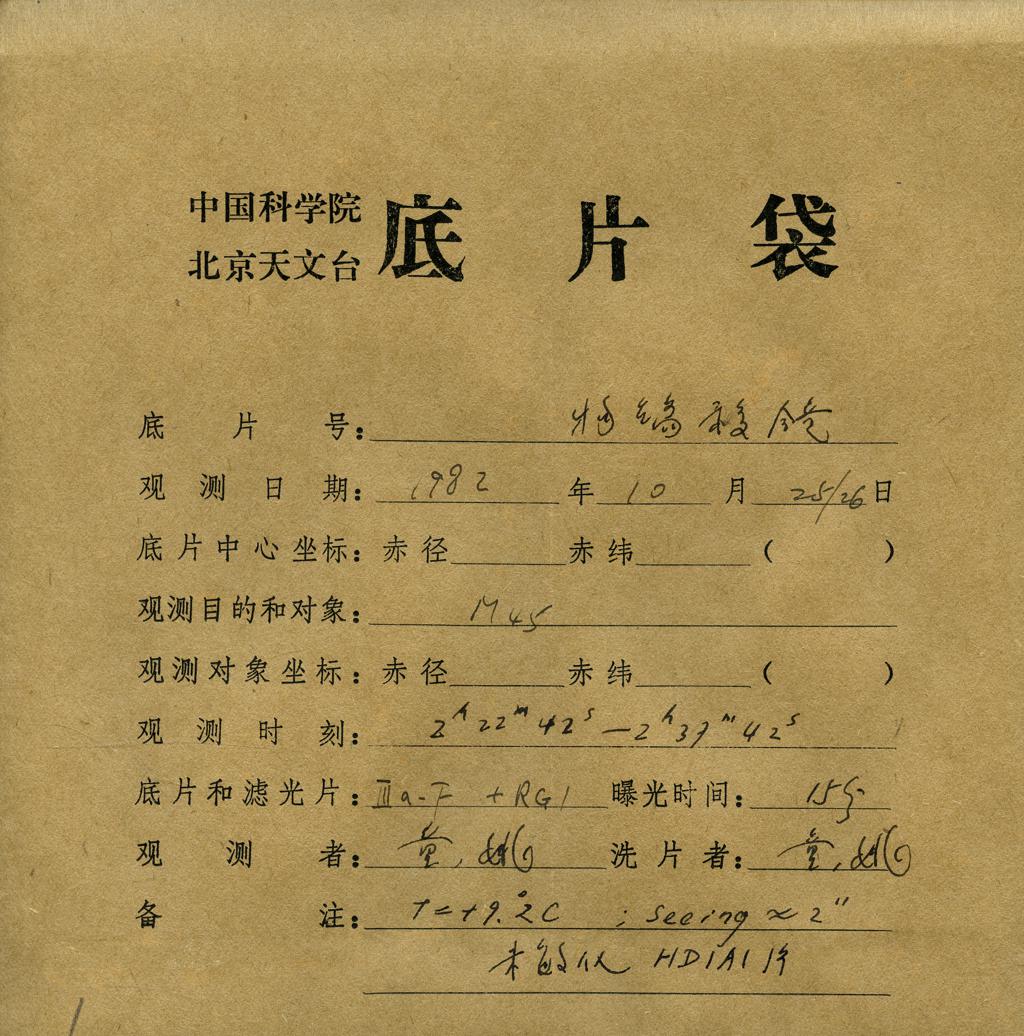 中国科学院
北京天文台
底片袋
底片号:
观测日期: 1982 年 10 月 25/26 日
底片中心坐标: 赤径 赤纬 ( )
观测目的和对象: M45
观测对象坐标: 赤径 赤纬 ( )
观测时刻: 2h22m42s—2h37m42s
底片和滤光片: IIIa-F + RG1 曝光时间: 15分
观测者: 童, 姚 洗片者: 童, 姚
备注: T=+9.°2C ; seeing ≈ 2"
未敏化